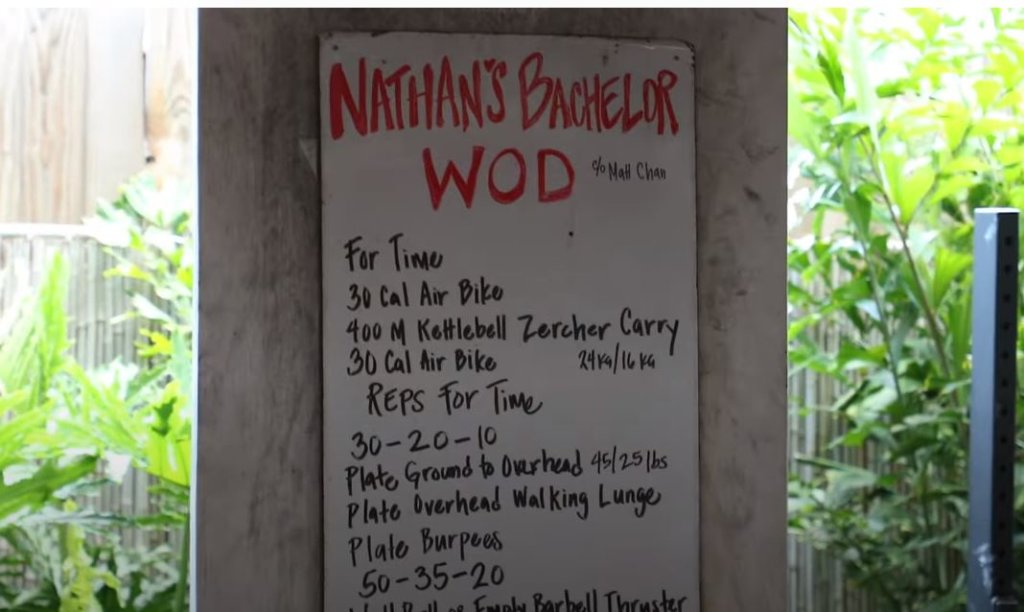 NATHAN'S BACHELOR
WOD c/o Matt Chan
For Time
30 Cal Air Bike
400 M Kettlebell Zercher Carry
30 Cal Air Bike 24kg/16kg
REPS For Time
30-20-10
Plate Ground to Overhead 45/25 lbs
Plate Overhead Walking Lunge
Plate Burpees
50-35-20
Wall Ball or Empty Barbell Thruster